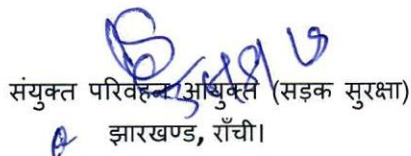 संयुक्त परिवहन आयुक्त (सड़क सुरक्षा)
झारखण्ड, राँची।